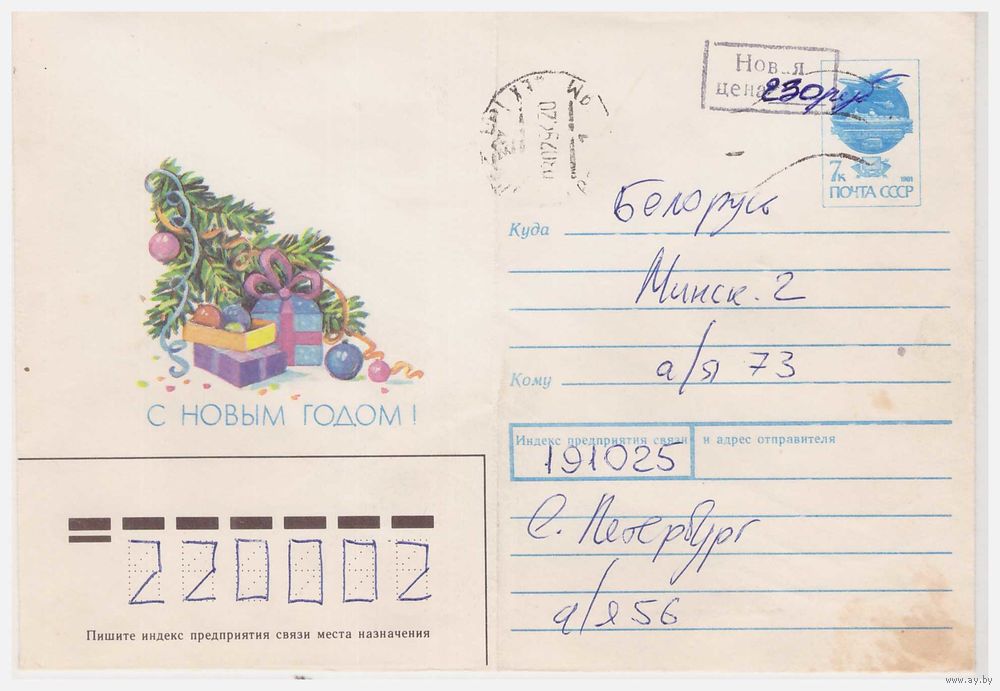 Новая
цена 230 руб
030294 20
7к 1991
ПОЧТА СССР
Беларусь
Куда
Минск. 2
а/я 73
Кому
С НОВЫМ ГОДОМ!
Индекс предприятия связи и адрес отправителя
191025
С. Петербург
а/я 56
220002
Пишите индекс предприятия связи места назначения
www.ay.by